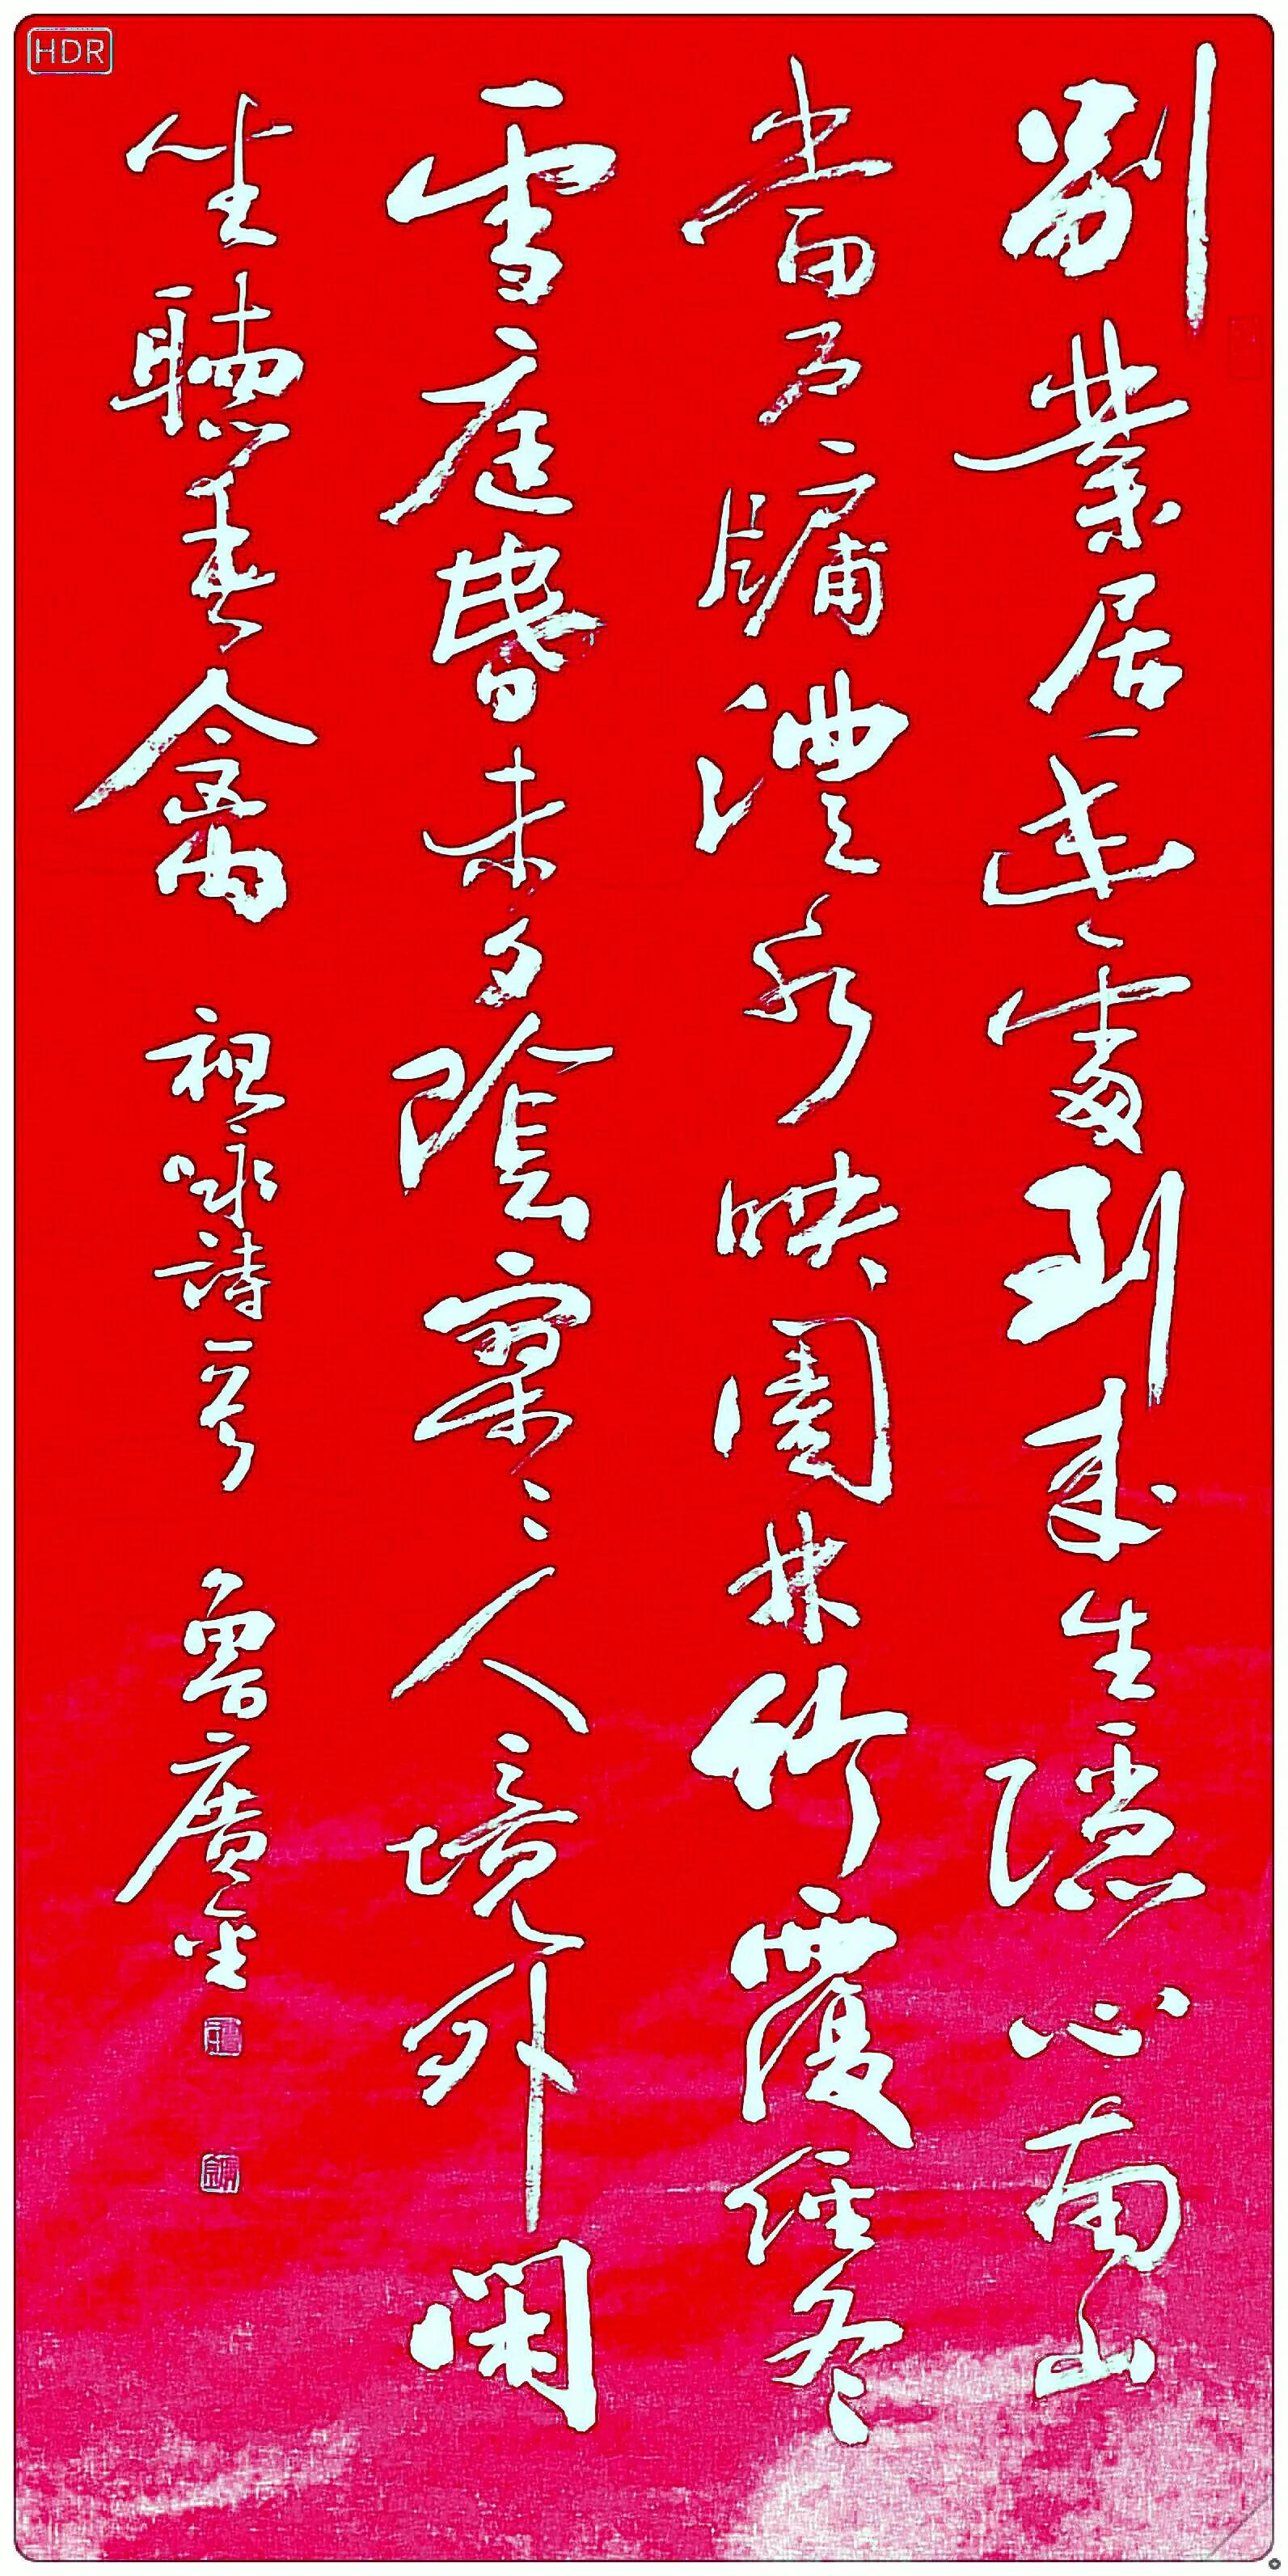 HDR
別業居幽處到來生隱心南山
當户牖澧水映園林竹覆經冬
雪庭昏未夕陰寥〻人境外閑
坐聽春禽 祖咏詩一首 魯廣